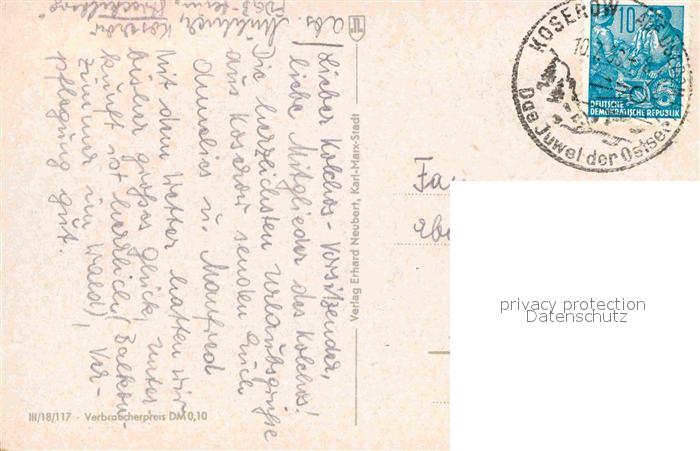 Abs.
Koserow
Lieber Kolchos-Vorsitzender,
liebe Mitglieder des Kolchos!
Die herzlichsten Urlaubsgrüße
aus Koserow senden Euch
u. Manfred
Mit dem Wetter hatten wir
bisher großes Glück, unter
kunft ist herrlich (Balkon-
zimmer im Wald), Ver-
pflegung gut.
Verlag Erhard Neubert, Karl-Marx-Stadt
III/18/117 · Verbraucherpreis DM 0,10
KOSEROW
Das Juwel der Ostsee
10
DEUTSCHE
DEMOKRATISCHE REPUBLIK
privacy protection
Datenschutz